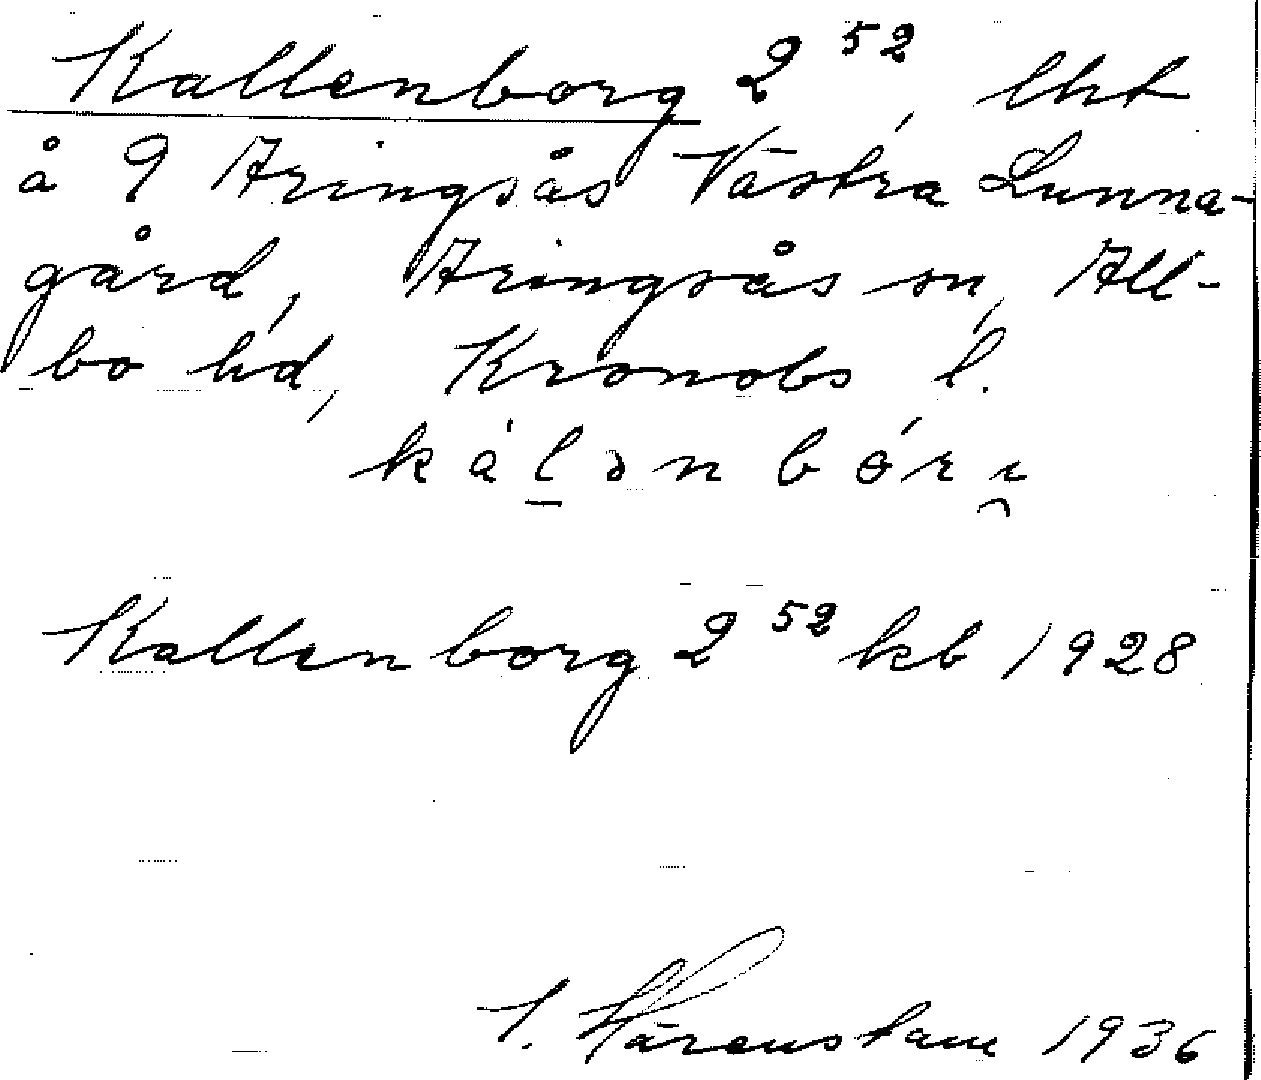 Kallenborg 2 52, lht
å 9 Aringsås Västra Lunna-
gård, Aringsås sn, All-
bo hd, Kronobs l.
kál̲ənbórı̯
Kallenborg 2 52 kb 1928
Härenstam 1936